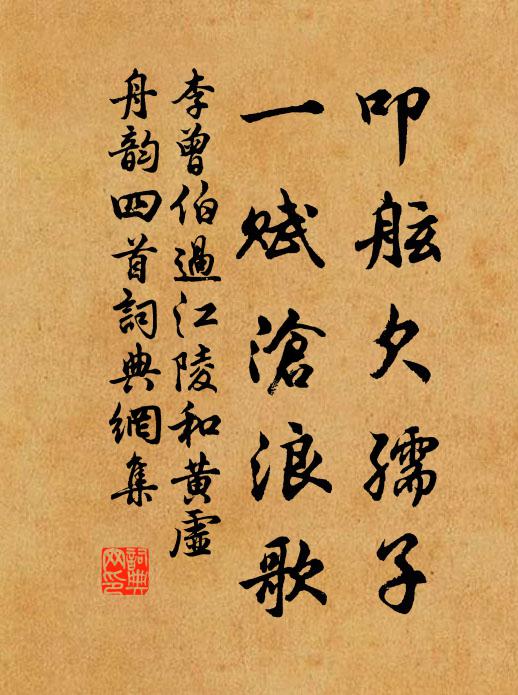 叩舷欠孺子
一賦滄浪歌
李曾伯過江陵和黃虛
舟韵四首詞典網集
詞典
网印